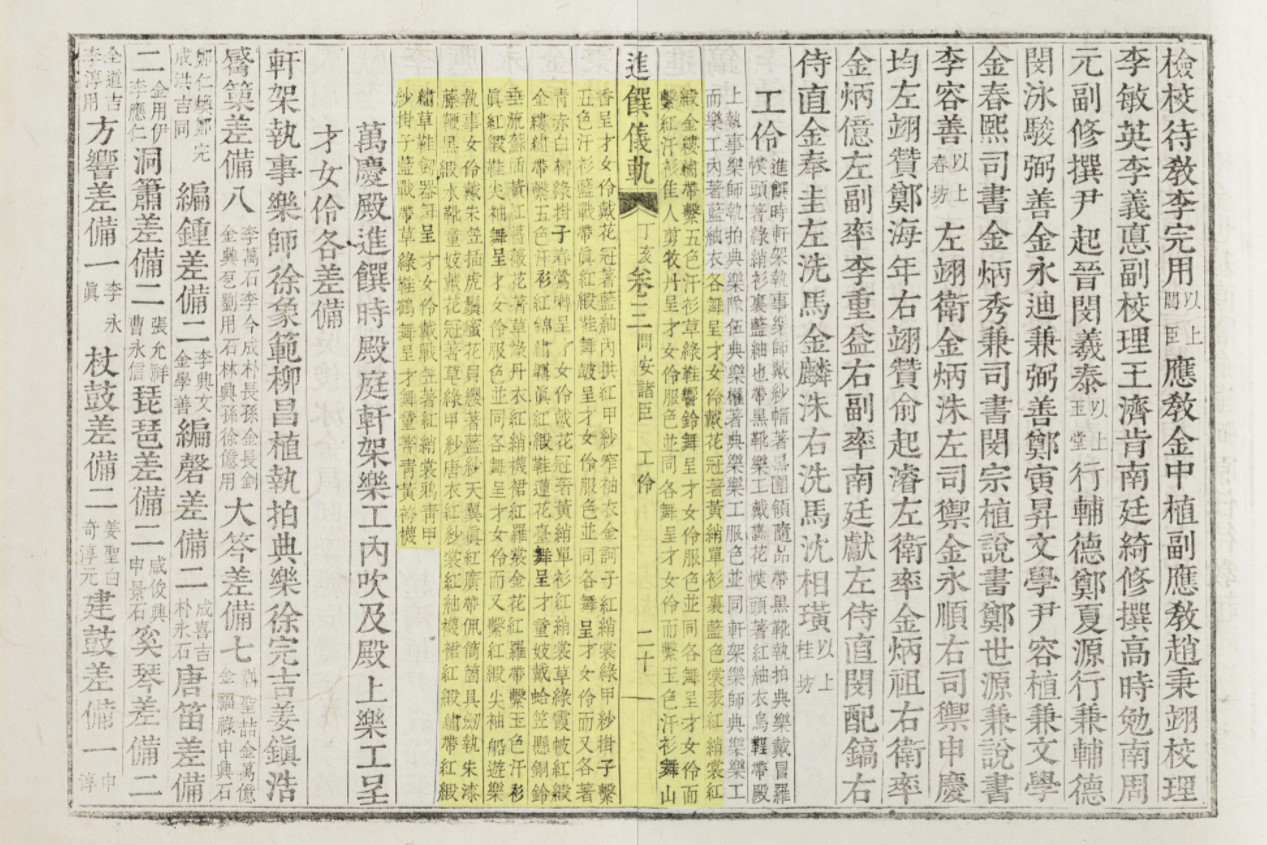 檢校待敎李完用以上閣臣應敎金中植副應敎趙秉翊校理
李敏英李義悳副校理王濟肯南廷綺修撰高時勉南周
元副修撰尹起晉閔羲泰以上玉堂行輔德鄭夏源行兼輔德
閔泳駿弼善金永迪兼弼善鄭寅昇文學尹容植兼文學
金春熙司書金炳秀兼司書閔宗植說書鄭世源兼說書
李容善以上春坊左翊衛金炳洙左司禦金永順右司禦申慶
均左翊贊鄭海年右翊贊俞起濬左衛率金炳祖右衛率
金炳億左副率李重益右副率南廷獻左侍直閔配鎬右
侍直金奉圭左洗馬金麟洙右洗馬沈相璜以上桂坊
工伶進饌時軒架執事樂師戴紗帽著黑團領隨品帶黑靴執拍典樂戴冒羅
幞頭著綠綃衫裏藍紬也帶黑靴樂工戴畵花幞頭著紅紬衣烏鞓帶殿
上執事樂師執拍典樂隊伍典樂權著典樂樂工服色並同軒架樂師典樂樂工
而樂工內著藍紬衣各舞呈才女伶戴花冠著黃綃單衫裏藍色裳表紅綃裳紅
緞金縷繡帶繫五色汗衫草綠鞋響鈴舞呈才女伶服色並同各舞呈才女伶而
繫紅汗衫佳人剪牧丹呈才女伶服色並同各舞呈才女伶而繫玉色汗衫舞山
進饌儀軌 丁亥 卷三 問安諸臣 工伶 二十一
香呈才女伶戴花冠著藍紬內拱紅甲紗窄袖衣金訶子紅綃裳綠甲紗掛子繫
五色汗衫藍戰帶眞紅緞鞋舞鼓呈才女伶服色並同各舞呈才女伶而又各著
靑赤白綠掛子春鶯囀呈才女伶戴花冠著黃綃單衫紅綃裳草綠霞帔紅緞
金縷繡帶繫五色汗衫紅錦繡韝眞紅緞鞋蓮花臺舞呈才童妓戴蛤笠懸銅鈴
垂流蘇揷黃紅薔薇花著草綠丹衣紅綃襪裙紅羅裳金花紅羅帶繫玉色汗衫
眞紅緞鞋尖袖舞呈才女伶服色並同各舞呈才女伶而又繫紅緞尖袖船遊樂
執事女伶戴朱笠揷虎鬚蜜花貝纓著藍紗天翼眞紅廣帶佩筒箇具劒執朱漆
藤鞭黑緞水靴童妓戴花冠著草綠甲紗唐衣紅紗裳紅紬襪裙紅緞繡帶紅緞
繡草鞋劒器舞呈才女伶戴戰笠著紅綃裳鴉靑甲
紗掛子藍戰帶草綠鞋鶴舞呈才舞童著靑黃袴襪
萬慶殿進饌時殿庭軒架樂工內吹及殿上樂工呈
才女伶各差備
軒架執事樂師徐象範柳昌植執拍典樂徐完吉姜鎭浩
觱篥差備八李萬石李今成朴長孫金長釗金興喜劉用石林興孫徐億用大笒差備七劉聖喆金萬億金福祿申興石
鄭仁極鄭完成洪吉同編鍾差備二李興文金學善編磬差備二成喜吉朴永石唐笛差備
二金用伊李應仁洞簫差備二張允群曹永信琵琶差備二咸俊興申景石奚琴差備二
全道吉李淳用方響差備一李永眞杖鼓差備二姜聖白奇淳元建鼓差備一申淳